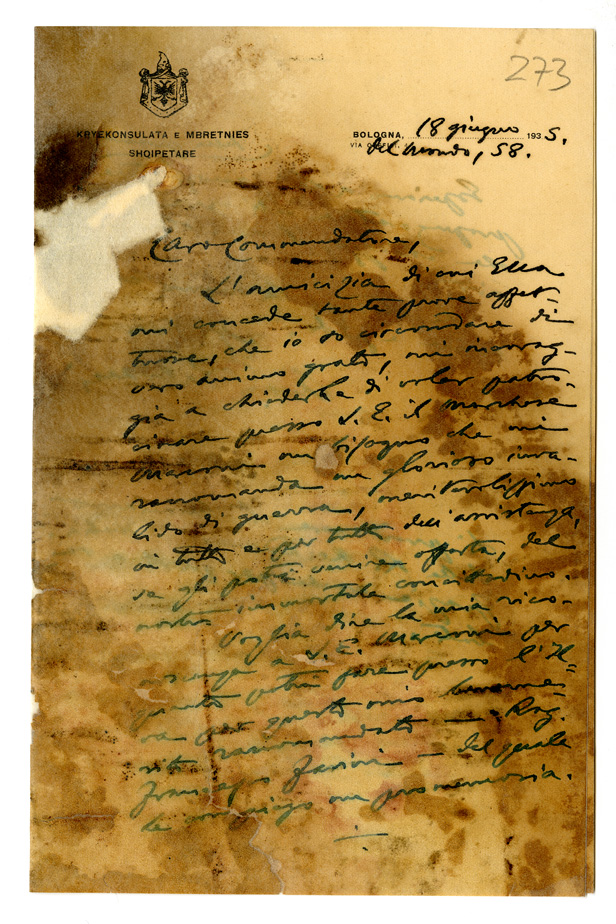 273
KRYEKONSULATA E MBRETNIES
SHQIPETARE
BOLOGNA, 18 giugno 1935.
VIA
del mondo, 58.
Caro Commendatore,
L'amicizia di cui Ella
mi concede tante prove affet-
tuose, che io so circondare di
vero animo grato, mi incorag-
gia a chiederle di voler patro-
cinare presso S. E. il marchese
Marconi un bisogno che mi
raccomanda un glorioso inva-
lido di guerra, meritevolissimo
in tutto e per tutto dell'assistenza,
se gli potrà venire offerta, del
nostro immortale concittadino.
Voglia dire la mia rico-
noscenza a S. E. Marconi per
quanto potrà fare presso l'
per questo mio
raccomandato — Rag.
Francesco — del quale
le un promemoria.